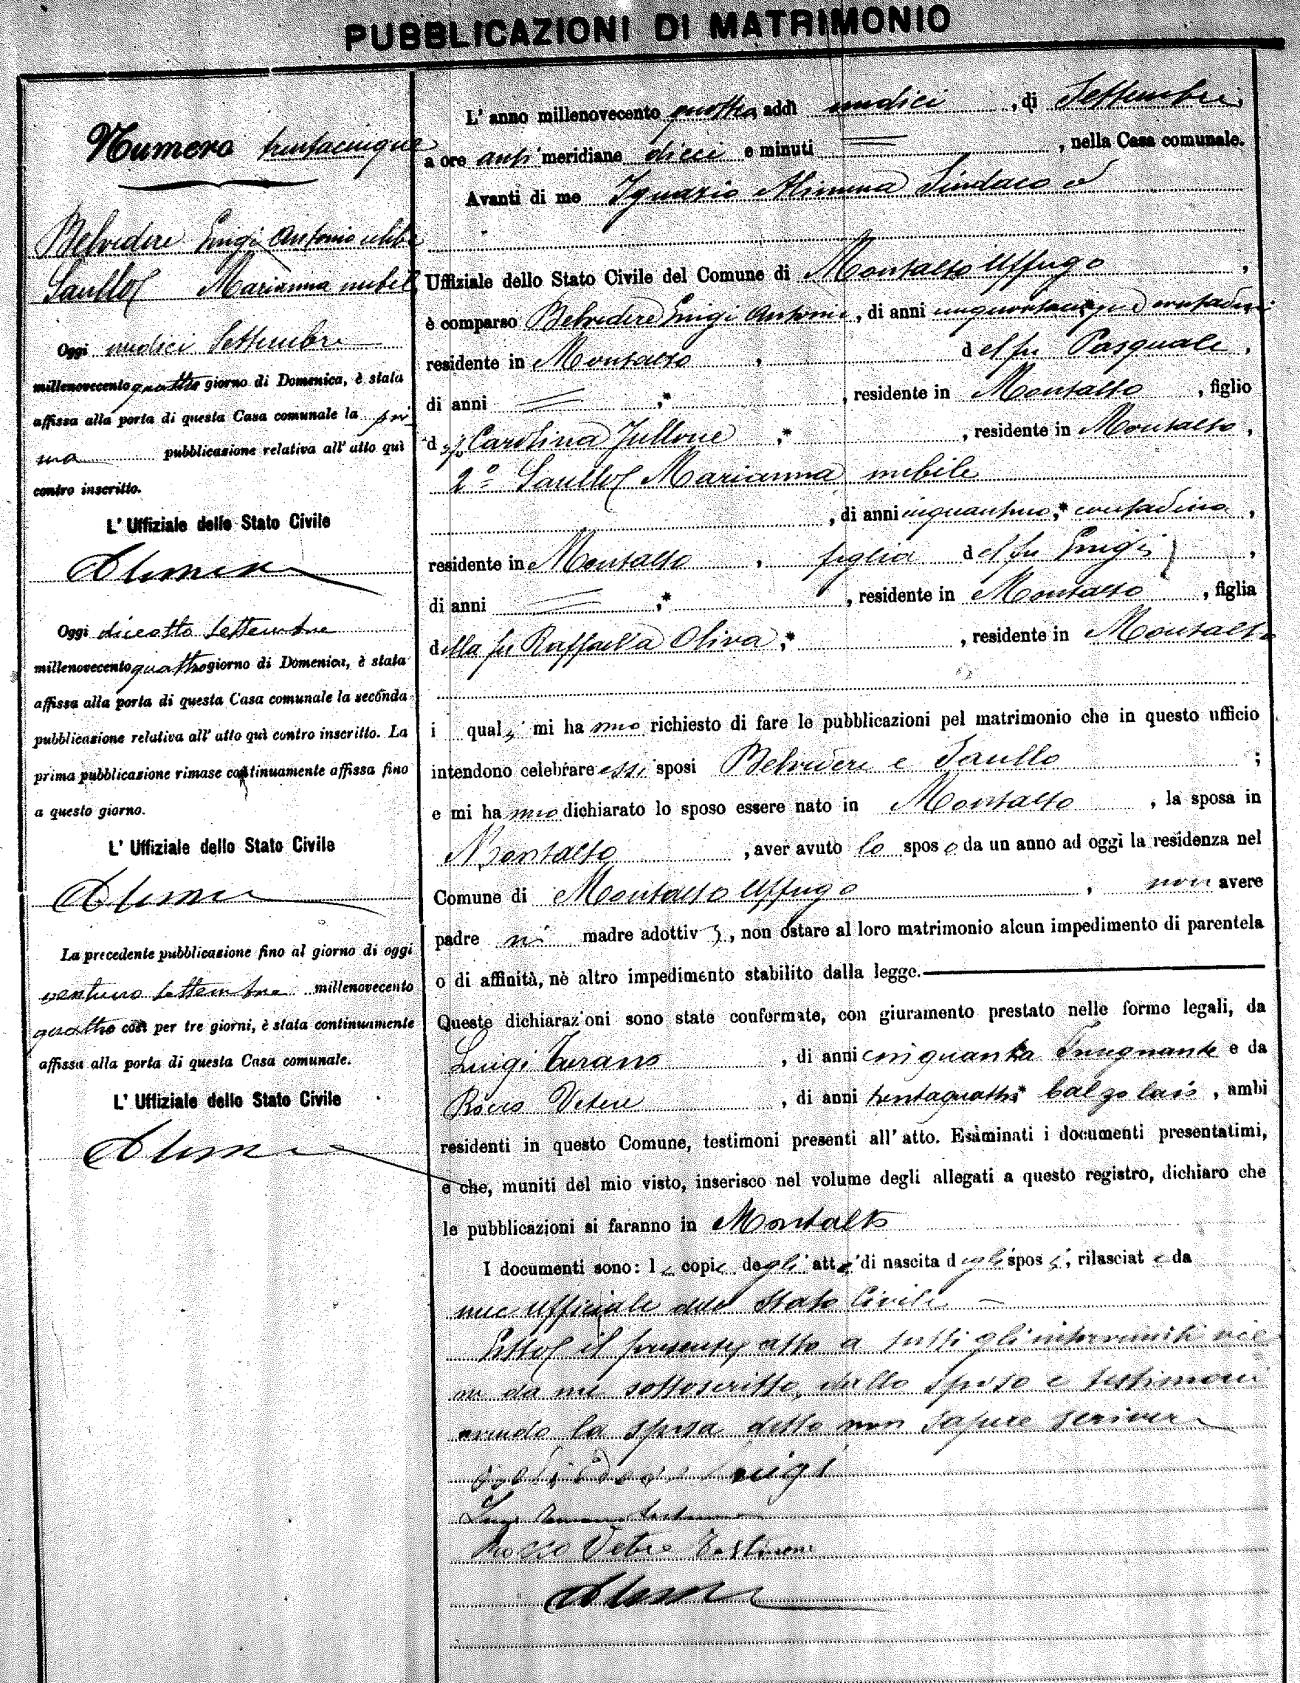 PUBBLICAZIONI DI MATRIMONIO
Numero trentacinque
Belvidere Luigi Antonio celibe
Saullo Marianna nubile
Oggi undici Settembre
millenovecento quattro giorno di Domenica, è stata
affissa alla porta di questa Casa comunale la pri
ma pubblicazione relativa all' atto quì
contro inscritto.
L' Uffiziale dello Stato Civile
Alimena
Oggi diciotto Settembre
millenovecento quattro giorno di Domenica, è stata
affissa alla porta di questa Casa comunale la seconda
pubblicazione relativa all' atto quì contro inscritto. La
prima pubblicazione rimase continuamente affissa fino
a questo giorno.
L' Uffiziale dello Stato Civile
Alimena
La precedente pubblicazione fino al giorno di oggi
ventuno Settembre millenovecento
quattro così per tre giorni, è stata continuamente
affissa alla porta di questa Casa comunale.
L' Uffiziale dello Stato Civile
Alimena
L' anno millenovecento quattro, addì undici, di Settembre
a ore anti meridiane dieci e minuti =, nella Casa comunale.
Avanti di me Ignazio Alimena Sindaco ed
Uffiziale dello Stato Civile del Comune di Montalto Uffugo,
è comparso Belvidere Luigi Antonio, di anni cinquantacinque contadino
residente in Montalto, del fu Pasquale,
di anni =,* , residente in Montalto, figlio
d Carolina ,* , residente in Montalto,
2º Saullo Marianna nubile
, di anni cinquantuno,* contadina,
residente in Montalto, figlia del fu Luigi,
di anni =,* , residente in Montalto, figlia
della fu Raffaella Oliva,* , residente in Montalto
i quali mi hanno richiesto di fare le pubblicazioni pel matrimonio che in questo ufficio
intendono celebrare essi sposi Belvidere e Saullo;
e mi hanno dichiarato lo sposo essere nato in Montalto, la sposa in
Montalto, aver avuto lo sposo da un anno ad oggi la residenza nel
Comune di Montalto Uffugo, non avere
padre nè madre adottivi, non ostare al loro matrimonio alcun impedimento di parentela
o di affinità, nè altro impedimento stabilito dalla legge.
Queste dichiarazioni sono state confermate, con giuramento prestato nelle forme legali, da
Luigi , di anni cinquanta Insegnante e da
Rocco Vetere, di anni trentaquattro* calzolaio, ambi
residenti in questo Comune, testimoni presenti all' atto. Esaminati i documenti presentatimi,
e che, muniti del mio visto, inserisco nel volume degli allegati a questo registro, dichiaro che
le pubblicazioni si faranno in Montalto
I documenti sono: le copie degli atti di nascita degli sposi, rilasciate da
me Uffiziale dello Stato Civile
Letto il presente atto a tutti gli intervenuti vie
ne da me sottoscritto, dallo sposo e testimoni
avendo la sposa detto non sapere scrivere
Luigi
Luigi
Rocco Vetere Testimone
Alimena